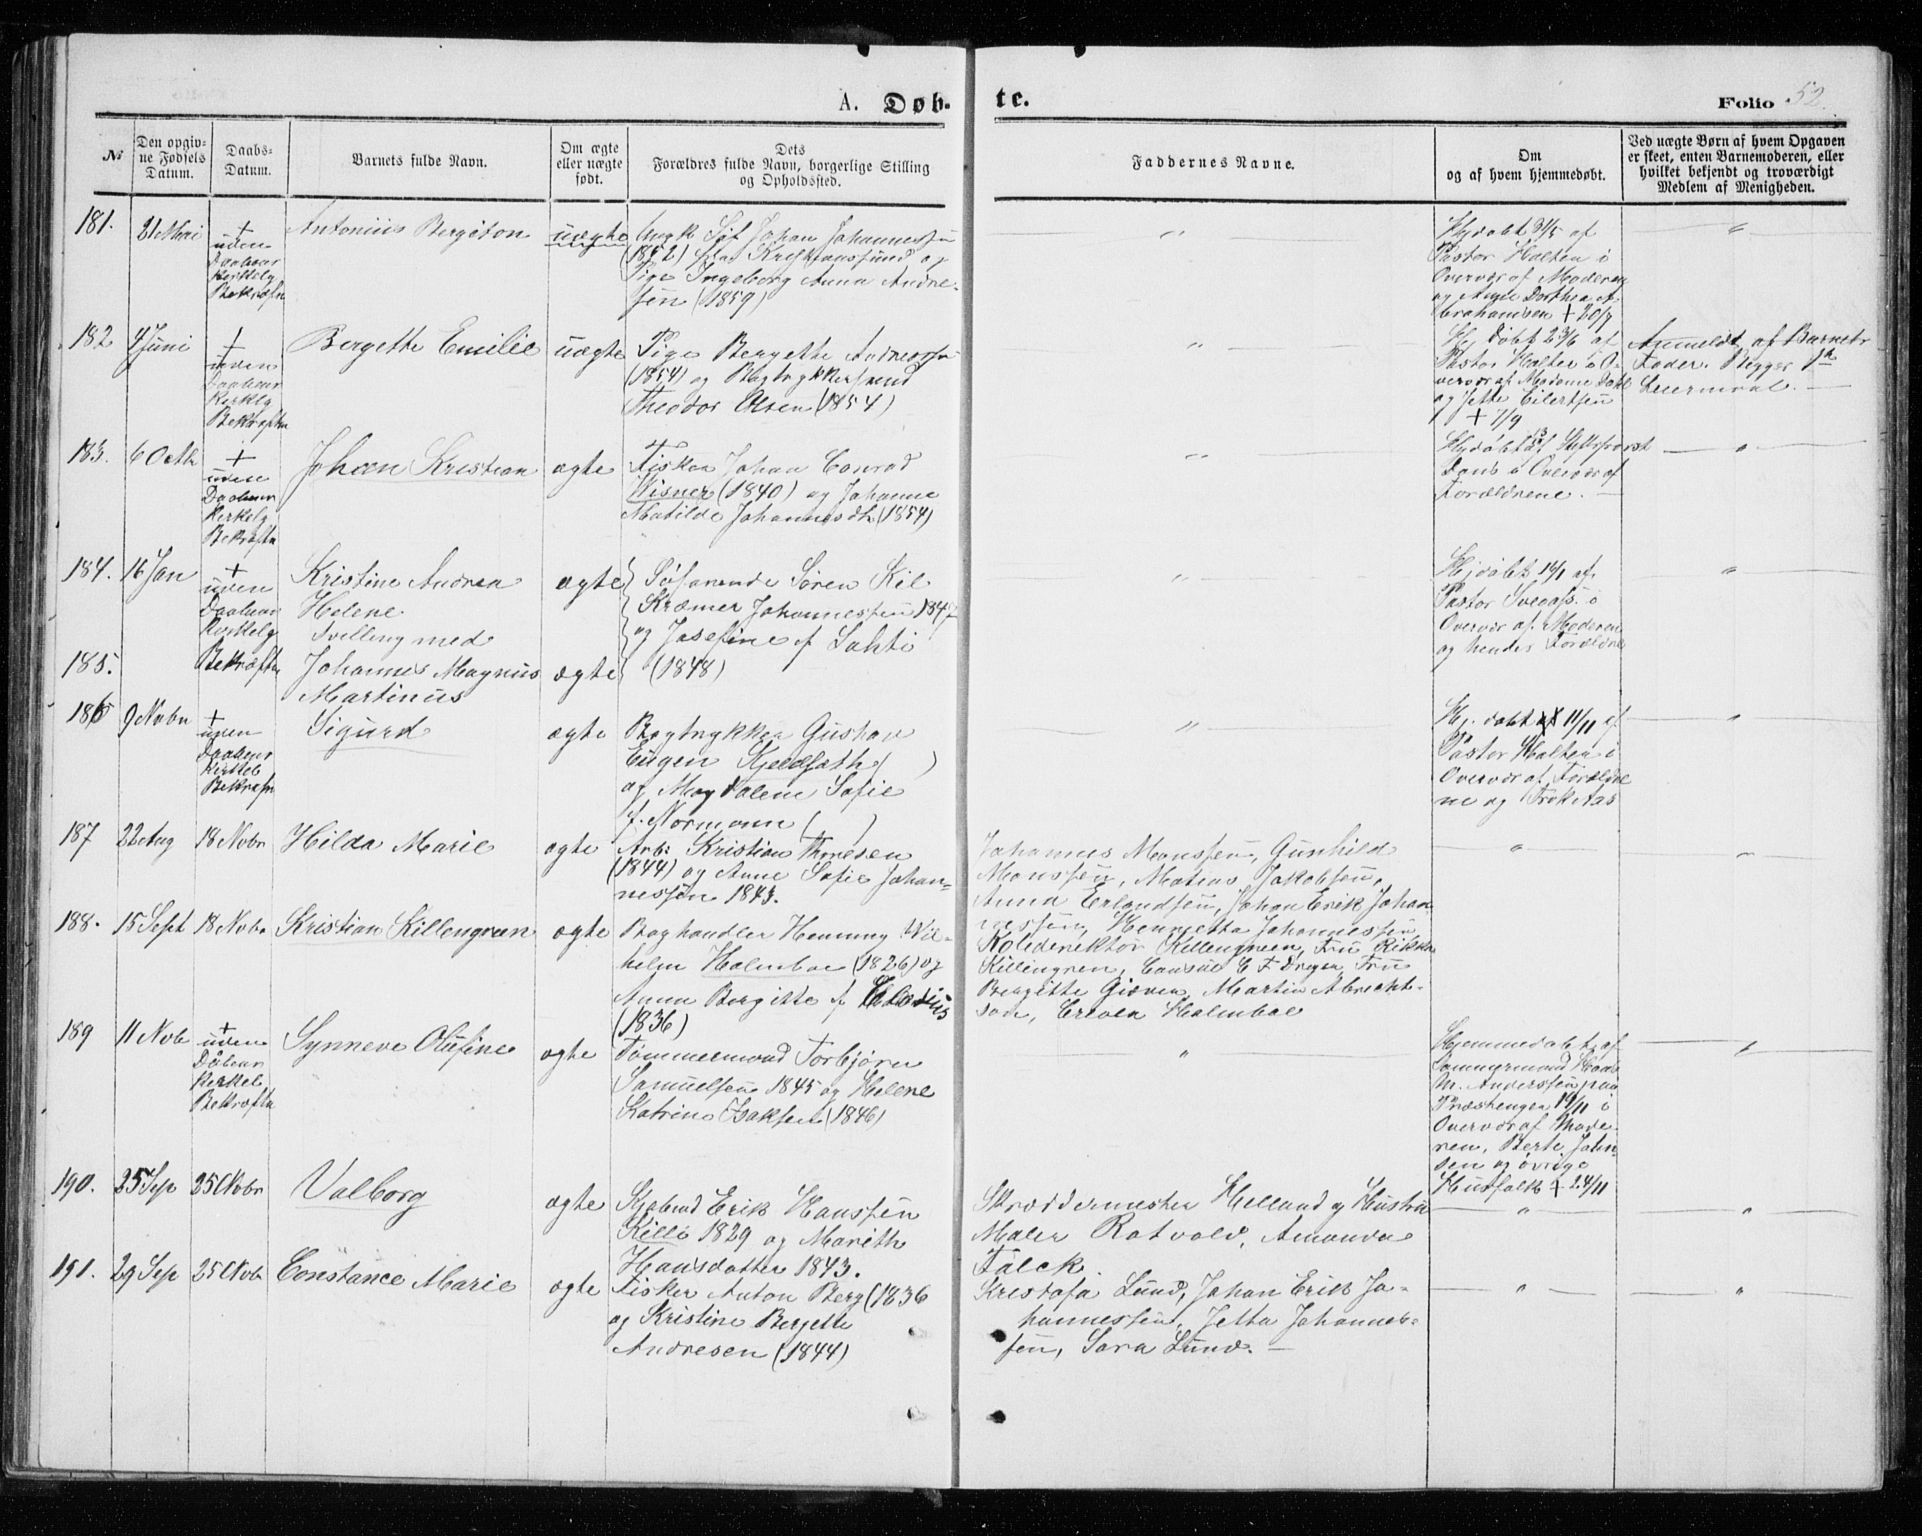 A. Døbte.
Folio 52.
№
Den opgivne Fødsels Datum.
Daabs-Datum.
Barnets fulde Navn.
Om ægte eller uægte født.
Dets Forældres fulde Navn, borgerlige Stilling og Opholdssted.
Faddernes Navne.
Om og af hvem hjemmedøbt.
Ved uægte Børn af hvem Opgaven er skeet, enten Barnemoderen, eller hvilket bekjendt og troværdigt Medlem af Menigheden.
181. 21 Mai
+ uden
Daabens
Kirkelg
Bekræftn
Antonius Bergiton
uægte
Ungk Søf Johan Johannessen
(1852) fra Kristiansund og
Pige Ingeborg Anna Andre-
sen (1859)
"
Hjdøbt 21/5 af
Pastor Halten i
Overvær af Moderen
og Dorthea A-
brahamsen + 20/7
"
182 4 Juni
+
uden
Daabens
Kirkelg
Bekræftn
Bergette Emilie
uægte
Pige Bergette Andreass
(1854) og Bogtrykkersvend
Theodor Olsen (1854)
"
Hj døbt 23/6 af
Pastor Halten i O-
vervær af Madame Dahl
og Jette Eilertsen
+ 7/9
Anmeldt af Barnets
Fader. Begges 1ste
Leiermaal. —
183. 6 Octb
+
uden
Daabens
Kirkelg
Bekræftn
Johan Kristian
ægte
Fisker Johan Conrad
Wisner (1840) og Johanne
Matilde Johannesdtr (1854)
"
Overvær af
Forældrene. —
"
184. 16 Jan
+
uden
Daabens
Kirkelg
Bekræftn
Kristine Andrea
Helene
Tvilling med
ægte
Søfarende Søren Kil
Kræmer Johannessen 1847
og Josefine f Lahti
(1848)
"
Hjdøbt 19/1 af
Pastor
Overvær af Moderen
og hendes Forældre
"
185.
Johannes Magnus
Martinus
ægte
186 9 Novbr
+
uden
Daabens
Kirkel
Bekræftn
Sigurd
ægte
Bogtrykker Gustav
Eugen Kjeldseth ( )
og Magdalene Sofie
f. Normann ( )
"
Hj. døbt 11/11 af
Pastor Halten i
Overvær af Forældre
ne og
"
187 22 Aug 18 Novbr
Hilda Marie
ægte
Arb: Kristian Thoresen
(1844) og Anne Sofie Johan-
nessen 1843.
Johannes Monssen, Gunhild
Monssen, Matias Jakobsen,
Anna Erlandsen, Johan Erik Johan
nessen, Henrietta Johannessen
"
188. 15 Sept 18 Novbr
Kristian Killengreen
ægte
Boghandler Henning Wil-
helm Holmboe (1826) og
Anna Bergitte f
(1836)
Killengreen, Fru Rikka
Killengren, Consul C F Dreyer, Fru
Bergitte Giæver, Martin Albrecht-
sen, Holmboe
189 11 Novb
+
uden
Dåbens
Kirkel
Bekræftn
Synneve Olufine
ægte
Tømmermand Torbjørn
Samuelsen 1845 og Helene
Katrine Isaksen (1846)
"
Hjemmedøbt af
Tømmermand Hans
M. Anderssen paa
Præstengen 14/11 i
Overvær af Mode-
ren, Berte John-
sen og øvrige
Husfolk + 24/11
"
190. 25 Sep 25 Novbr
Valborg
ægte
Erik Hanssen
Killi 1829 og Marith
Hansdatter 1843.
Skræddermester Helland og Hustru
Maler Rotvold, Amanda
Falck.
"
"
191. 29 Sep 25 Novb
Constance Marie
ægte
Fisker Anton Berg (1836
og Kristine Bergette
Andresen (1844)
Kristofa Lund, Johan Erik Jo-
hannessen, Jetta Johannes-
sen, Sara Lund. —
"
"